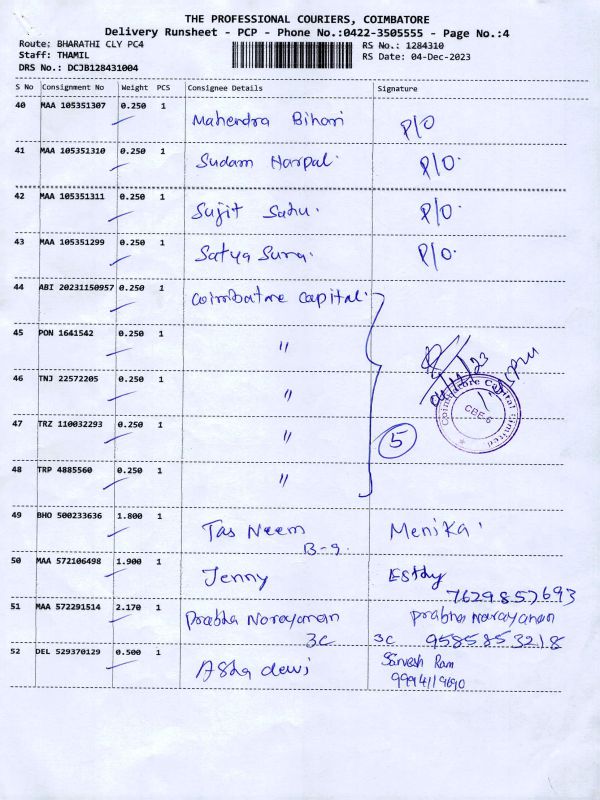 THE PROFESSIONAL COURIERS, COIMBATORE
Delivery Runsheet - PCP - Phone No.:0422-3505555 - Page No.:4
Route: BHARATHI CLY PC4
RS No.: 1284310
Staff: THAMIL
RS Date: 04-Dec-2023
DRS No.: DCJB128431004
S No Consignment No Weight PCS Consignee Details Signature
40 MAA 105351307 0.250 1 Mahendra Bihari P/O
41 MAA 105351310 0.250 1 Sudam Harpal. P/O.
42 MAA 105351311 0.250 1 Sujit Sahu. P/O.
43 MAA 105351299 0.250 1 Satya Sura. P/O.
44 ABI 20231150957 0.250 1 Coimbatore capital.
45 PON 1641542 0.250 1 "
46 TNJ 22572205 0.250 1 "
47 TRZ 110032293 0.250 1 "
48 TRP 4885560 0.250 1 "
5
Coimbatore Capital Limited
CBE-6
49 BHO 500233636 1.800 1 Tas Neem Menika
B-9
50 MAA 572106498 1.900 1 Jenny
7629857693
51 MAA 572291514 2.170 1 Prabha Narayanan Prabha Narayanan
3C 3C 9585853218
52 DEL 529370129 0.500 1 Asha dewi Sarvesh Ram